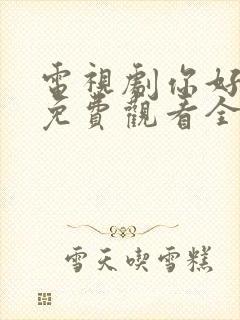 電視劇你好
免費觀看全
雪天喫雪糕